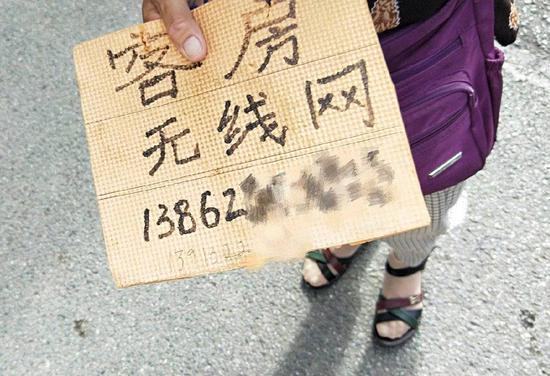 客房
无线网
13862